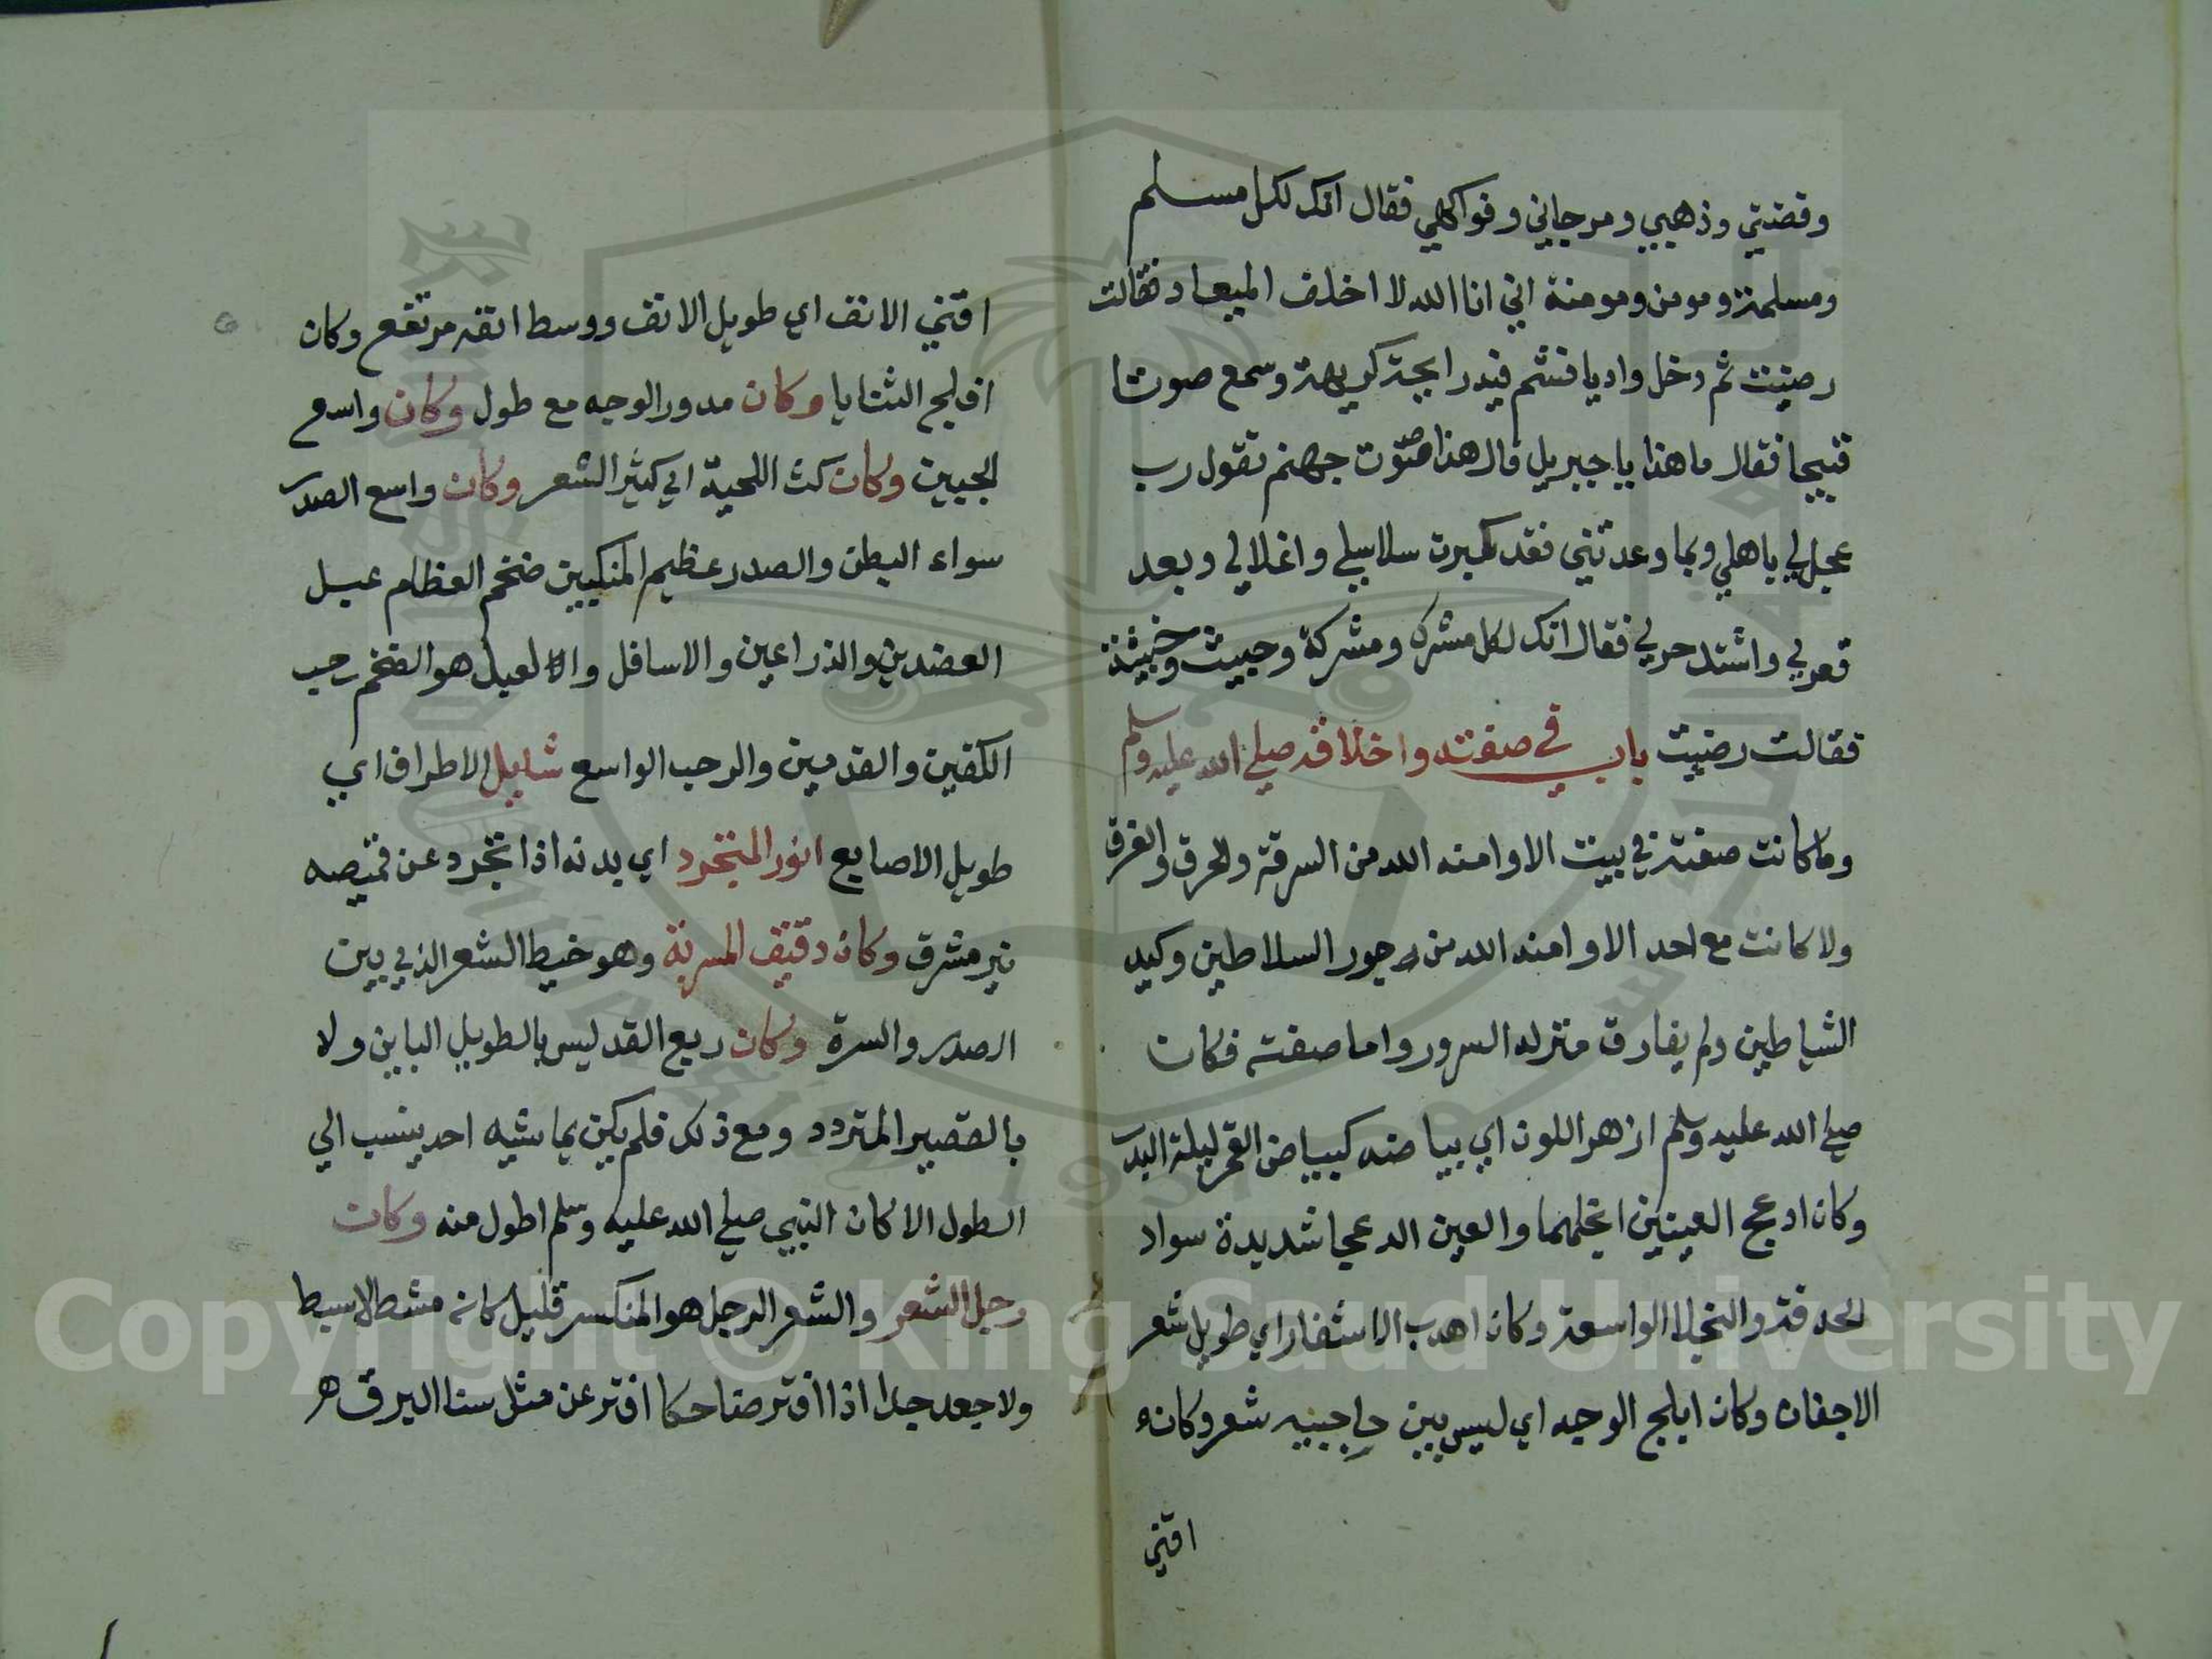 وفضتي وذهبي ومرجاني وفواكهي فقال انك لكل مسلم
ومسلمة ومومن ومومنة اني انا الله لا اخلف الميعاد فقالت
رضيت ثم دخل واديا فشم فيه رايحة كريهة وسمع صوتا
قبيحا فقال ما هذا يا جبريل قال هذا صوت جهنم تقول رب
عجل لي باهلي وبما وعدتني فقد كبرت سلاسلي واغلالي وبعد
قعري واشتد حري فقال انك لكل مشرك ومشركة وخبيث وخبيثة
فقالت رضيت باب في صفته واخلاقه صلي الله عليه وسلم
وما كانت صفته في بيت الا وامنه الله من السرقة والحرق والغرق
ولا كانت مع احد الا وامنه الله من جور السلاطين وكيد
الشياطين ولم يفارق منزله السرور واما صفته فكان
صلي الله عليه وسلم ازهر اللون اي بياضه كبياض القمر ليلة البدر
وكان ادعج العينين انجلهما والعين الدعجا شديدة سواد
الحدقة والنجلا الواسعة وكان اهدب الاشفار اي طويل شعر
الاجفان وكان ابلج الوجه اي ليس بين حاجبيه شعر وكان
اقني
اقني الانف اي طويل الانف ووسط انفه مرتفع وكان
افلج الثنايا وكان مدور الوجه مع طول وكان واسع
الجبين وكان كث اللحية اي كثير الشعر وكان واسع الصدر
سواء البطن والصدر عظيم المنكبين ضخم العظام عبل
العضدين والذراعين والاسافل والعبل هو الضخم رحب
الكفين والقدمين والرحب الواسع شايل الاطراف اي
طويل الاصابع انور المتجرد اي بدنه اذا تجرد عن قميصه
نير مشرق وكان دقيق المسربة وهو خيط الشعر الذي بين
الصدر والسرة وكان ربع القد ليس بالطويل الباين ولا
بالقصير المتردد ومع ذلك فلم يكن يماشيه احد ينسب الي
الطول الا كان النبي صلي الله عليه وسلم اطول منه وكان
رجل الشعر والشعر الرجل هو المنكسر قليل كانه مشط لا سبط
ولا جعد جدا اذا افتر ضاحكا افتر عن مثل سنا البرق
Copyright © King Saud University